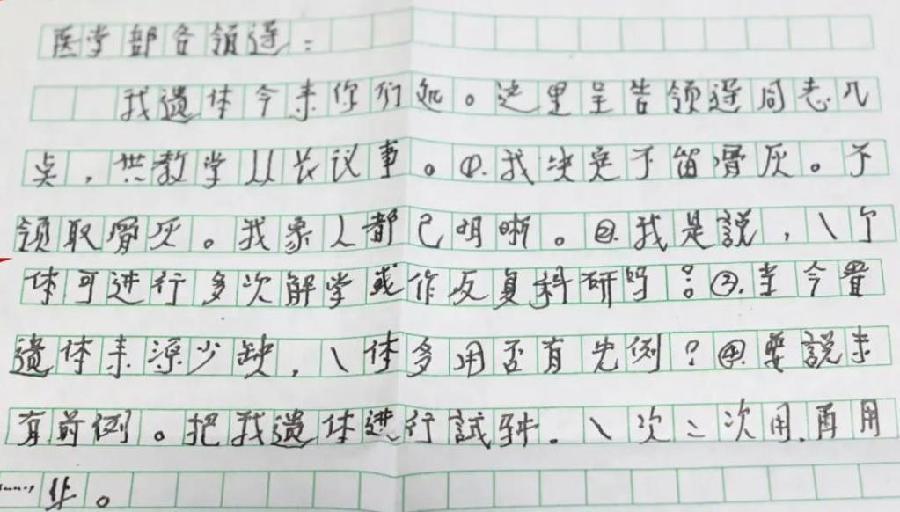 医学部各领导：
我遗体今来你们处。这里呈告领导同志几
点，共教学从长议事。①.我决定不留骨灰。不
领取骨灰。我家人都已明晰。②.我是説，一个
体可进行多次解学或作反复科研吗？③.当今
遗体来源少缺，一体多用否有先例？④.要説未
有前例。把我遗体进行試騂.一次二次用.再用
……止。